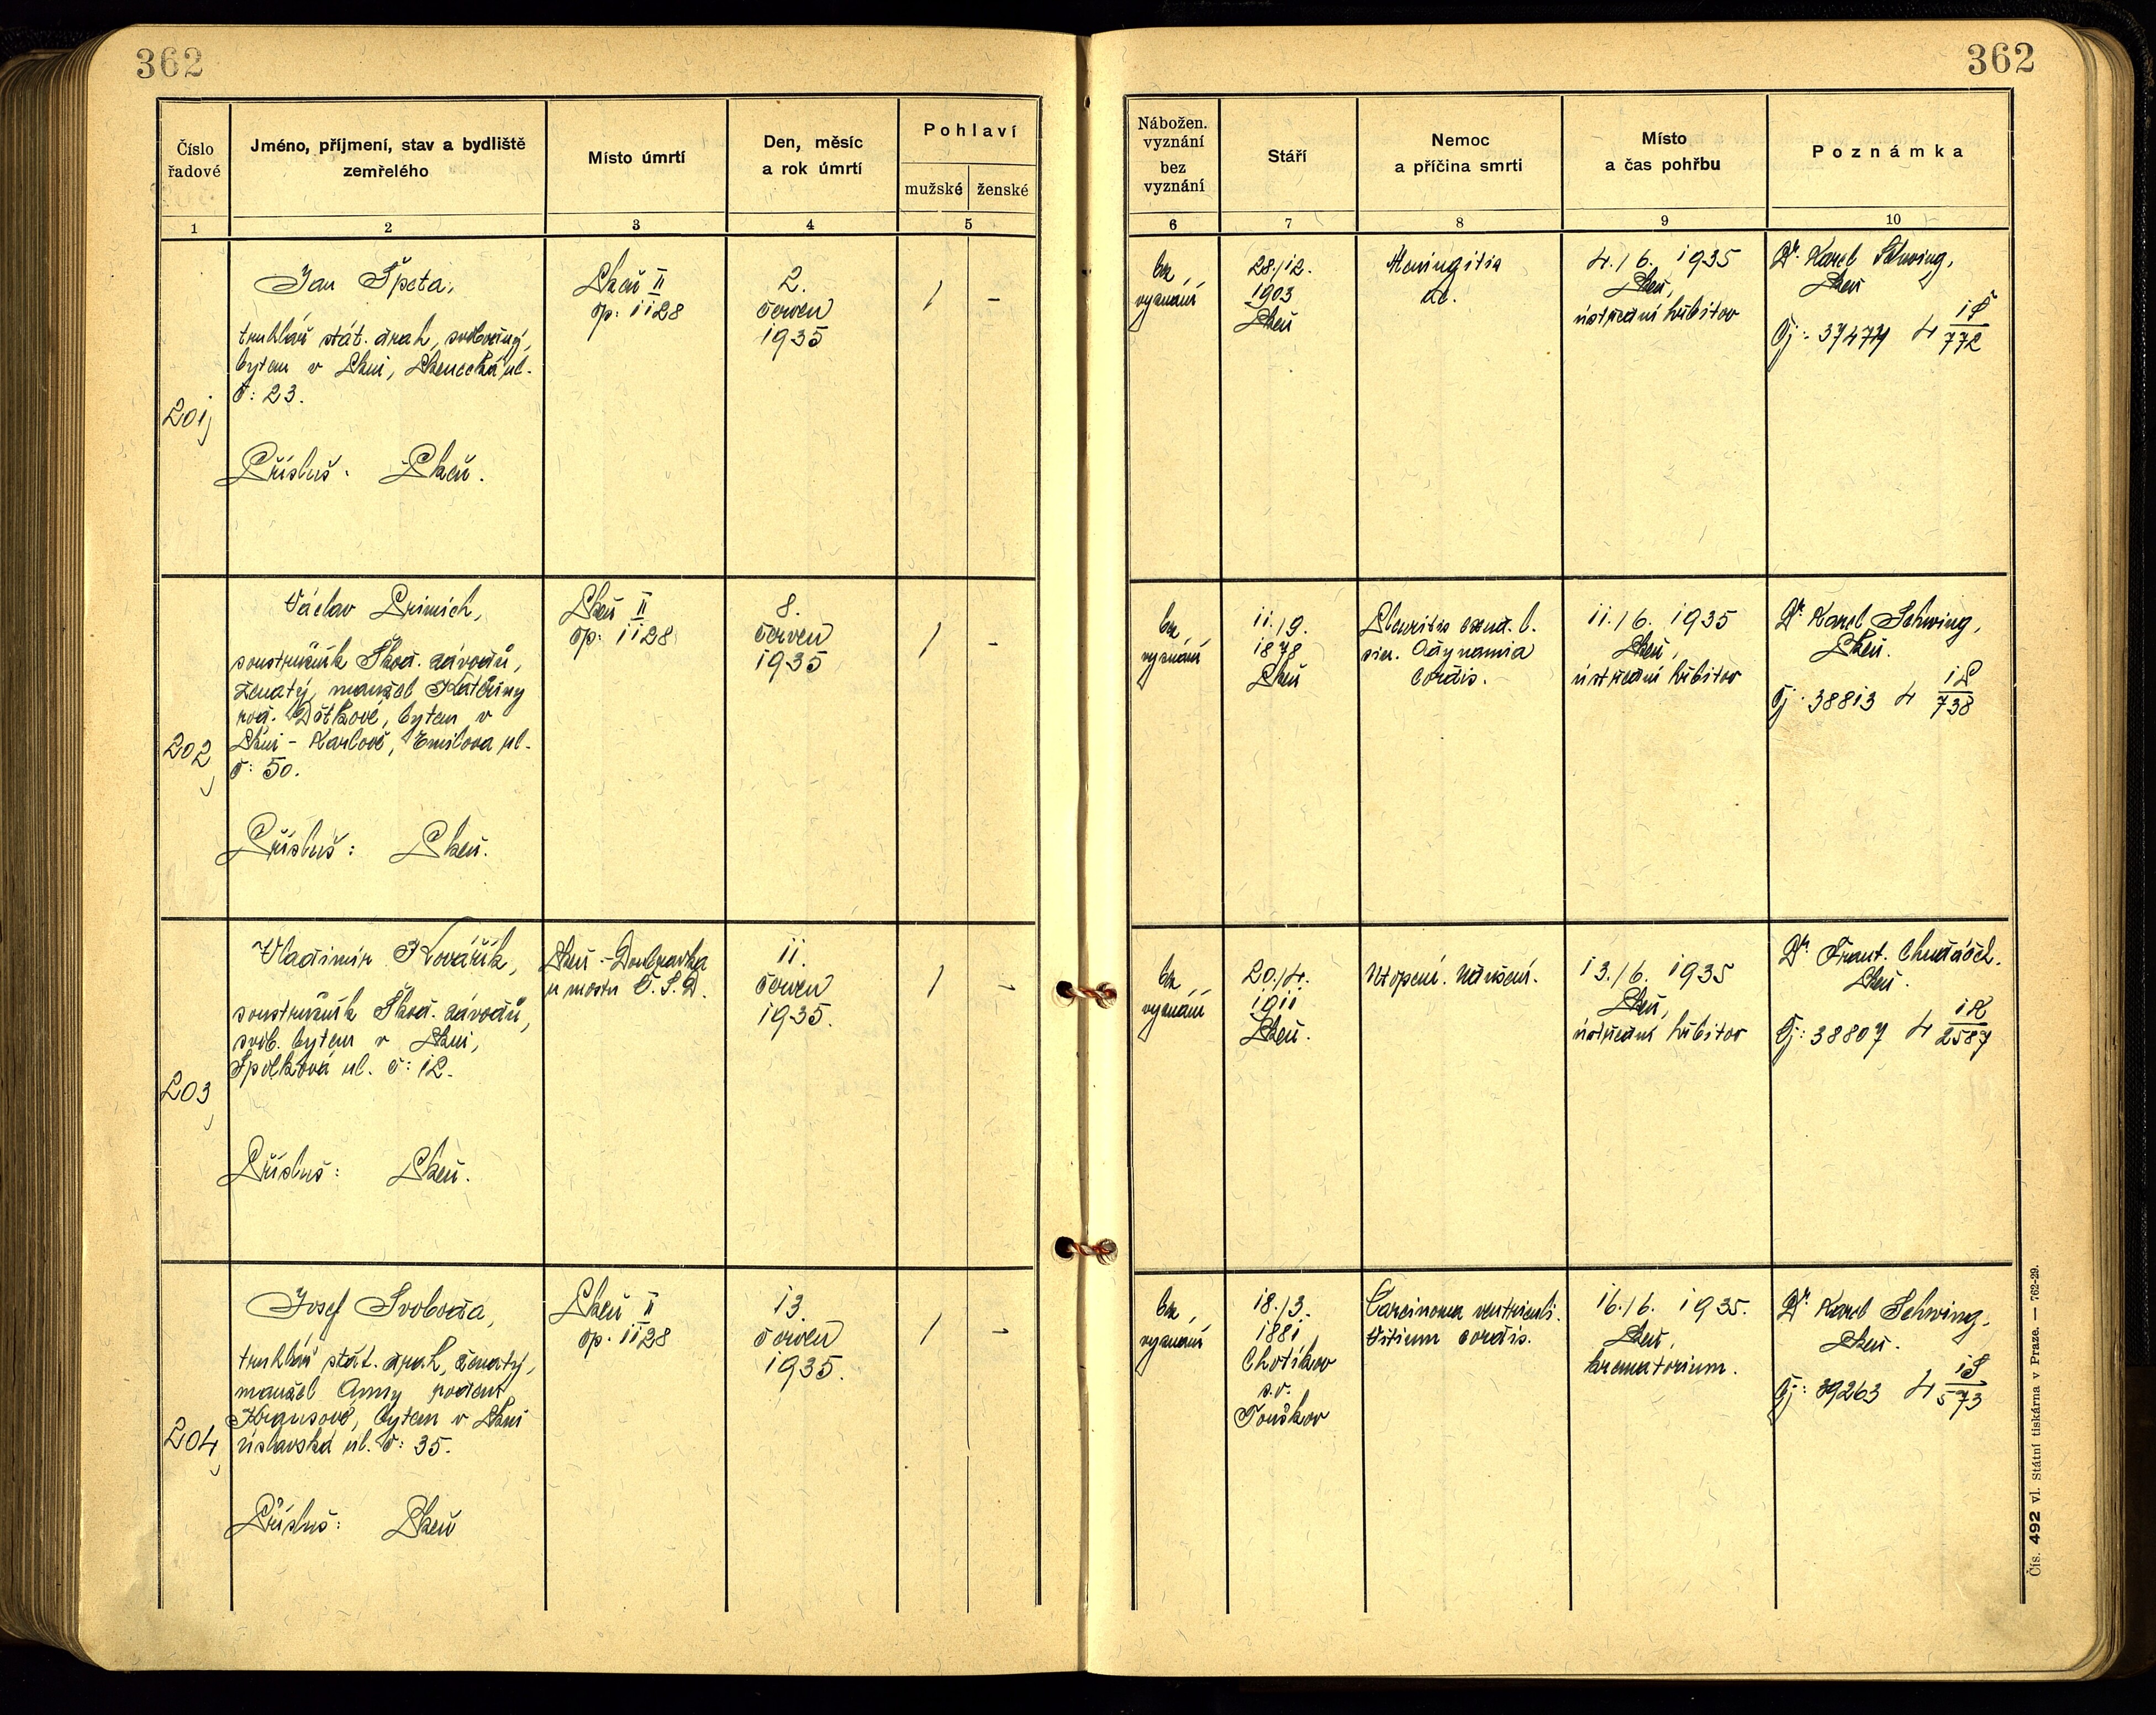 362
362
Číslo řadové
Jméno, příjmení, stav a bydliště zemřelého
Místo úmrtí
Den, měsíc a rok úmrtí
Pohlaví
mužské
ženské
Nábožen. vyznání
bez vyznání
Stáří
Nemoc a příčina smrti
Místo a čas pohřbu
Poznámka
1
2
3
4
5
6
7
8
9
10
201
Jan Špeta,
truhlář stát. drah, svobodný,
bytem v Plzni, ul.
č: 23.
Přísluš. Plzeň.
Plzeň II
čp: 1128
2.
červen
1935
/
-
bez
vyznání
28./12.
1903
Plzeň
Meningitis
ac.
4./6. 1935
Plzeň,
ústřední hřbitov
Dr. Karel Schwing,
Plzeň
Čj: 37474 4 1Š/772
202
Václav
soustružník Škod. závodů,
ženatý, manžel Kateřiny
roz. bytem v
Plzni - Karlově, Emilova ul.
č: 50.
Přísluš: Plzeň.
Plzeň II
čp: 1128
8.
červen
1935
/
-
bez
vyznání
11./9.
1878
Plzeň
Pleuritis exud. l.
sin. Adynamia
cordis.
11./6. 1935
Plzeň,
ústřední hřbitov
Dr. Karel Schwing,
Plzeň.
Čj: 38813 4 1P/738
203
Vladimír Kovářík,
soustružník Škod. závodů,
svob. bytem v Plzni,
Spolková ul. č: 12.
Přísluš: Plzeň.
Plzeň - Doubravka
u mostu Č.S.D.
11.
červen
1935.
/
-
bez
vyznání
20./4.
1911
Plzeň.
Utopení. Udušení.
13./6. 1935
Plzeň,
ústřední hřbitov
Dr. Frant.
Plzeň.
Čj: 38807 4 1K/2587
204
Josef Svoboda,
truhlář stát. drah, ženatý,
manžel Anny rozené
Krausové, bytem v Plzni
úslavská ul. č: 35.
Přísluš: Plzeň
Plzeň II
čp. 1128
13.
červen
1935.
/
-
bez
vyznání
18./3.
1881
Chotíkov
s.o.
Touškov
Carcinoma ventriculi.
Vitium cordis.
16./6. 1935.
Plzeň,
krematorium.
Dr. Karel Schwing,
Plzeň.
Čj: 39263 4 1S/573
Čís. 492 vl. Státní tiskárna v Praze. — 762-29.